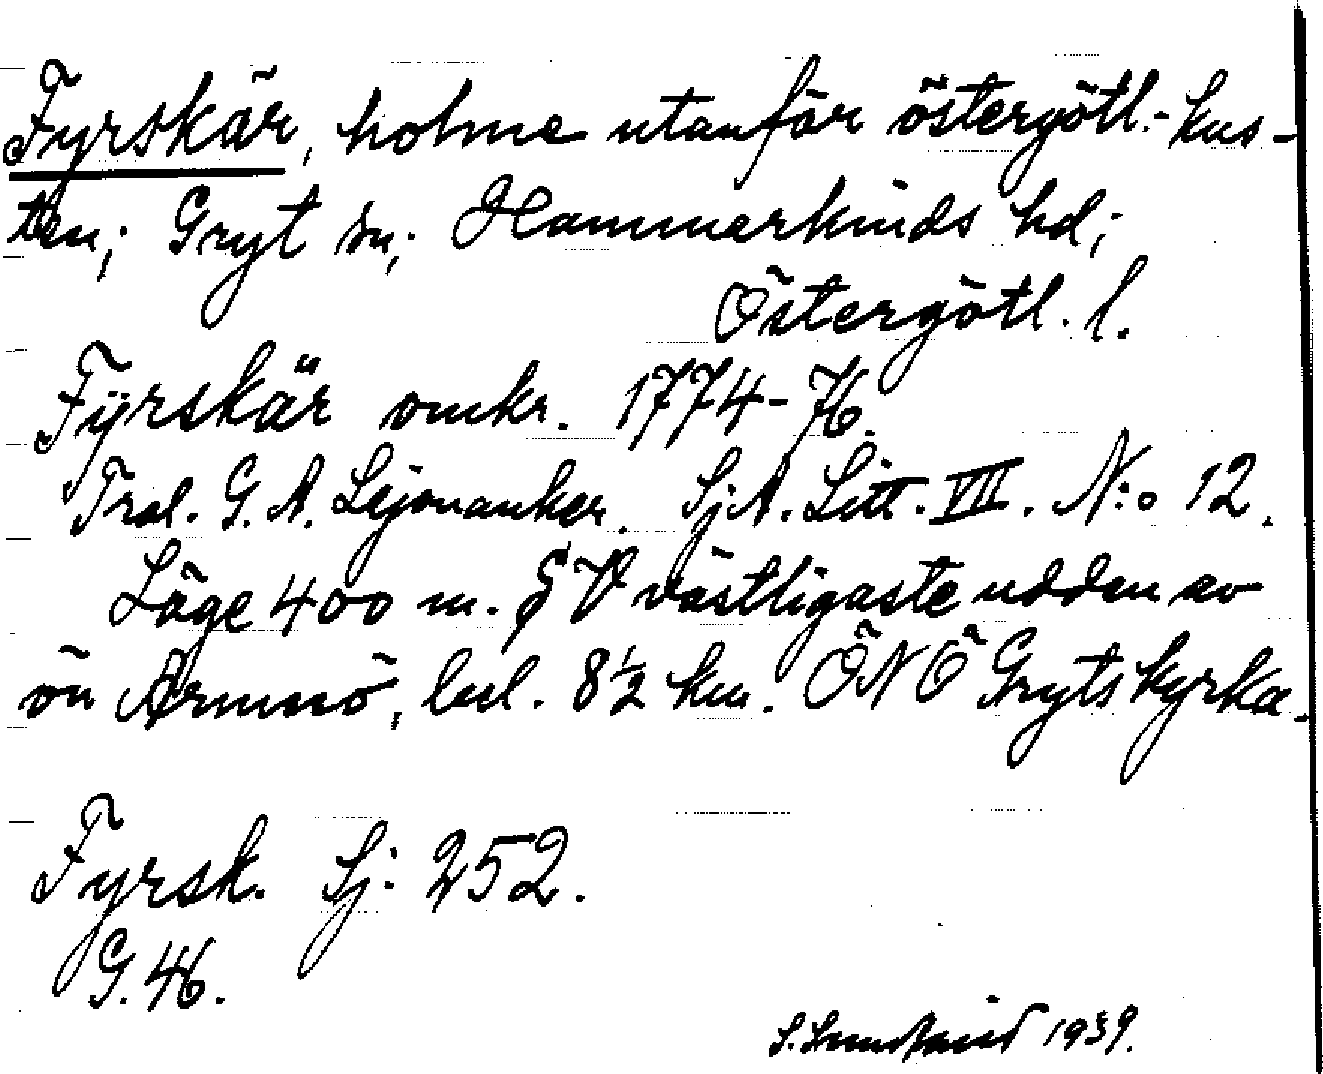 Fyrskär, holme utanför östergötl.-kus-
ten; Gryt sn; Hammerkinds hd;
Östergötl. l.
Fÿrskär omkr. 1774-76.
Trol. G. A. Lejonanker. SjA. Litt. VII. N:o 12.
Läge 400 m. S V västligaste udden av
ön Ärmnö, bel. 8½ km. ÖNÖ Gryts kyrka.
Fyrsk. Sj: 252.
G. 46.
S. 1939.